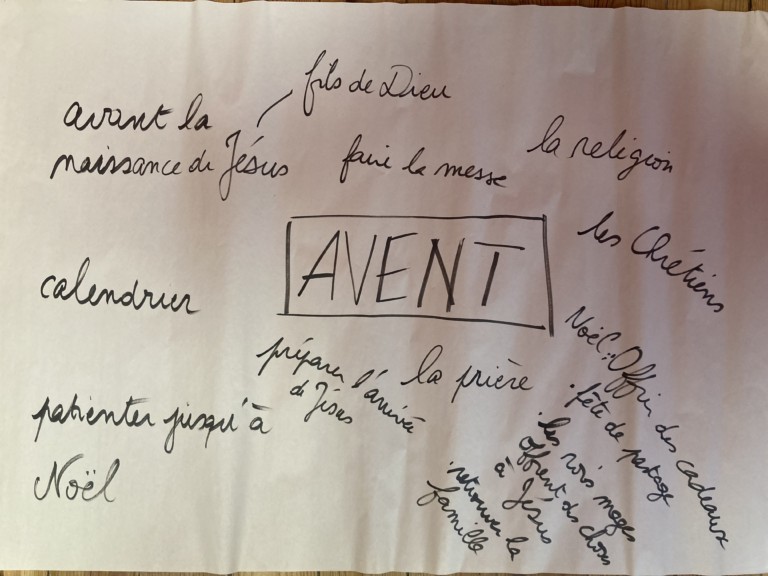 fils de Dieu
avant la
naissance de Jésus
faire la messe
la religion
les Chrétiens
AVENT
calendrier
préparer l'arrivée
de Jésus
la prière
patienter jusqu'à
Noël
Noël: Offrir des cadeaux
. fête de partage
. les rois mages
offrent des choses
à Jésus
. retrouver la
famille